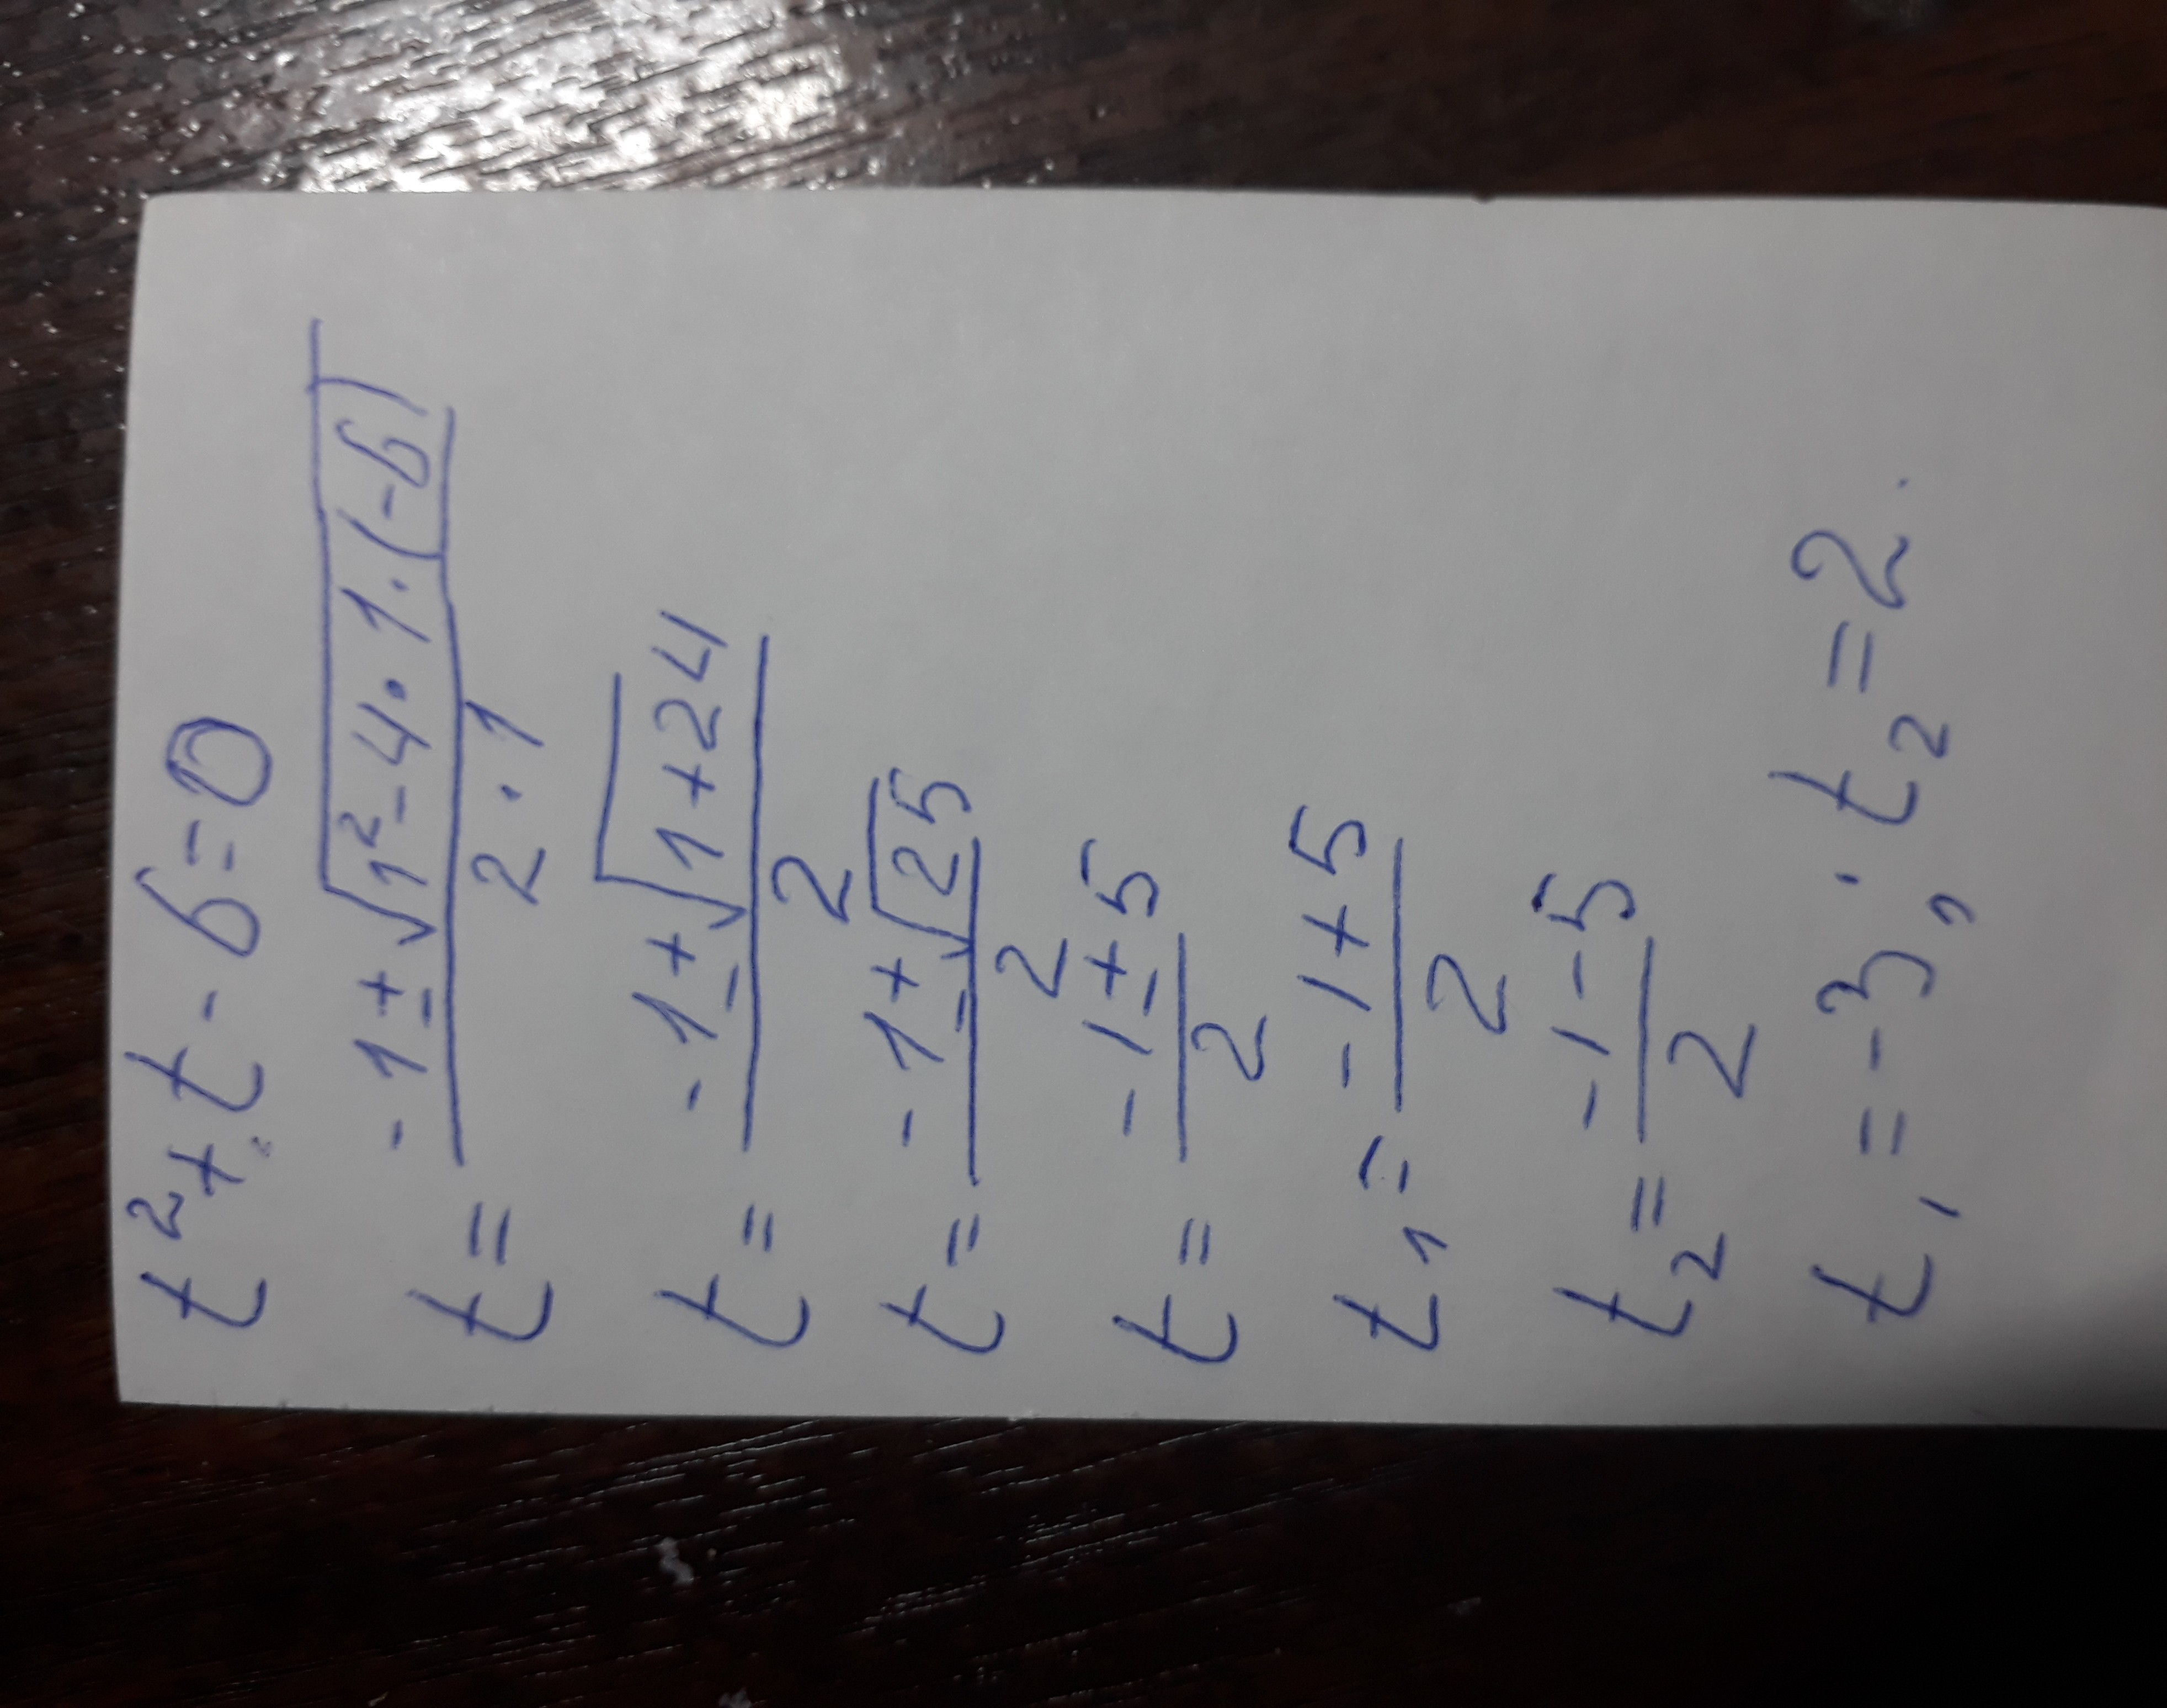 t² + t - 6 = 0
t = (-1 ± √(1² - 4 · 1 · (-6))) / (2 · 1)
t = (-1 ± √(1 + 24)) / 2
t = (-1 ± √25) / 2
t = (-1 ± 5) / 2
t₁ = (-1 + 5) / 2
t₂ = (-1 - 5) / 2
t₁ = -3, t₂ = 2.